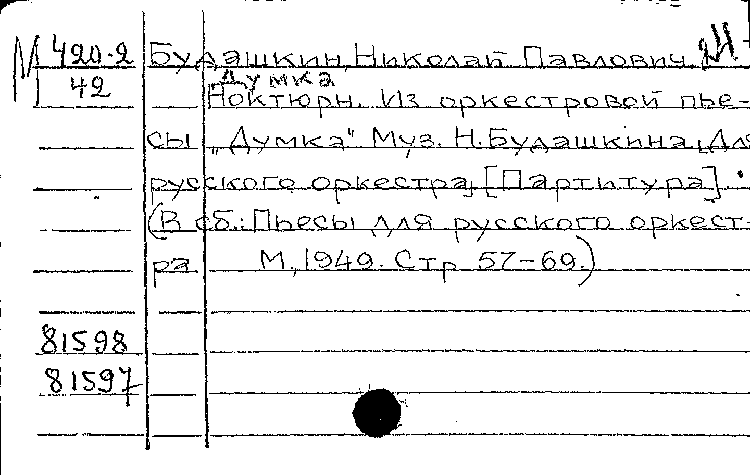 М 420-2 Будашкин, Николай Павлович.
42 Думка
Ноктюрн. Из оркестровой пье-
сы „Думка" Муз. Н. Будашкина, [Для
русского оркестра]. [Партитура].
(В сб.: Пьесы для русского оркест-
ра М., 1949. Стр. 57-69.)
81598
81597